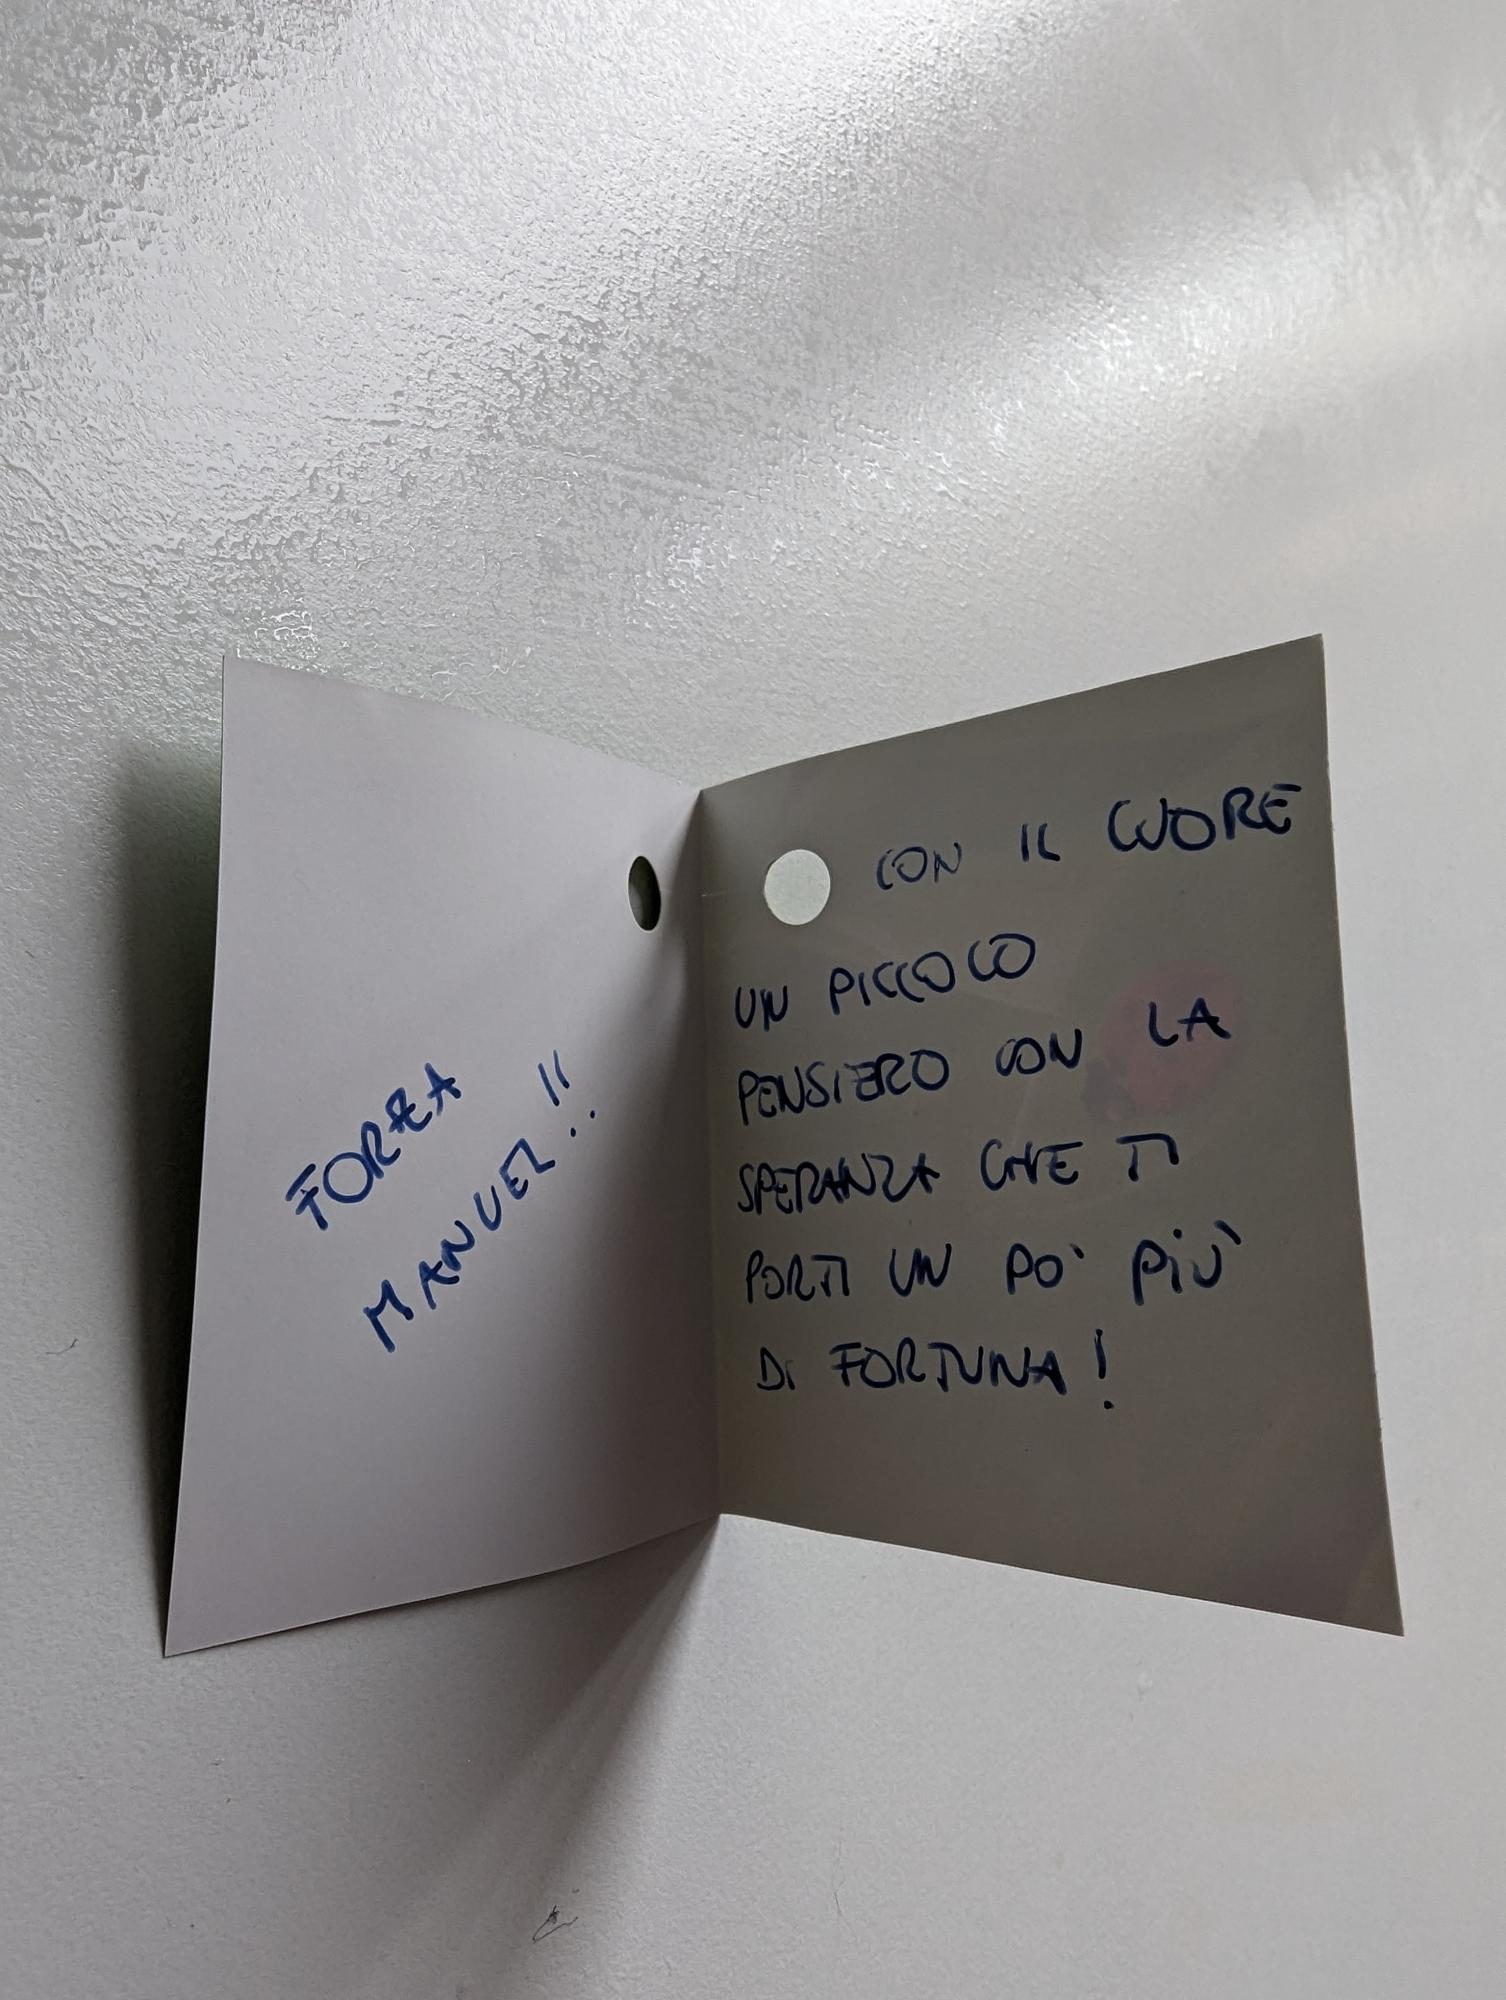 FORZA
MANUEL!!
CON IL CUORE
UN PICCOLO
PENSIERO CON LA
SPERANZA CHE TI
PORTI UN PO' PIÙ
DI FORTUNA!